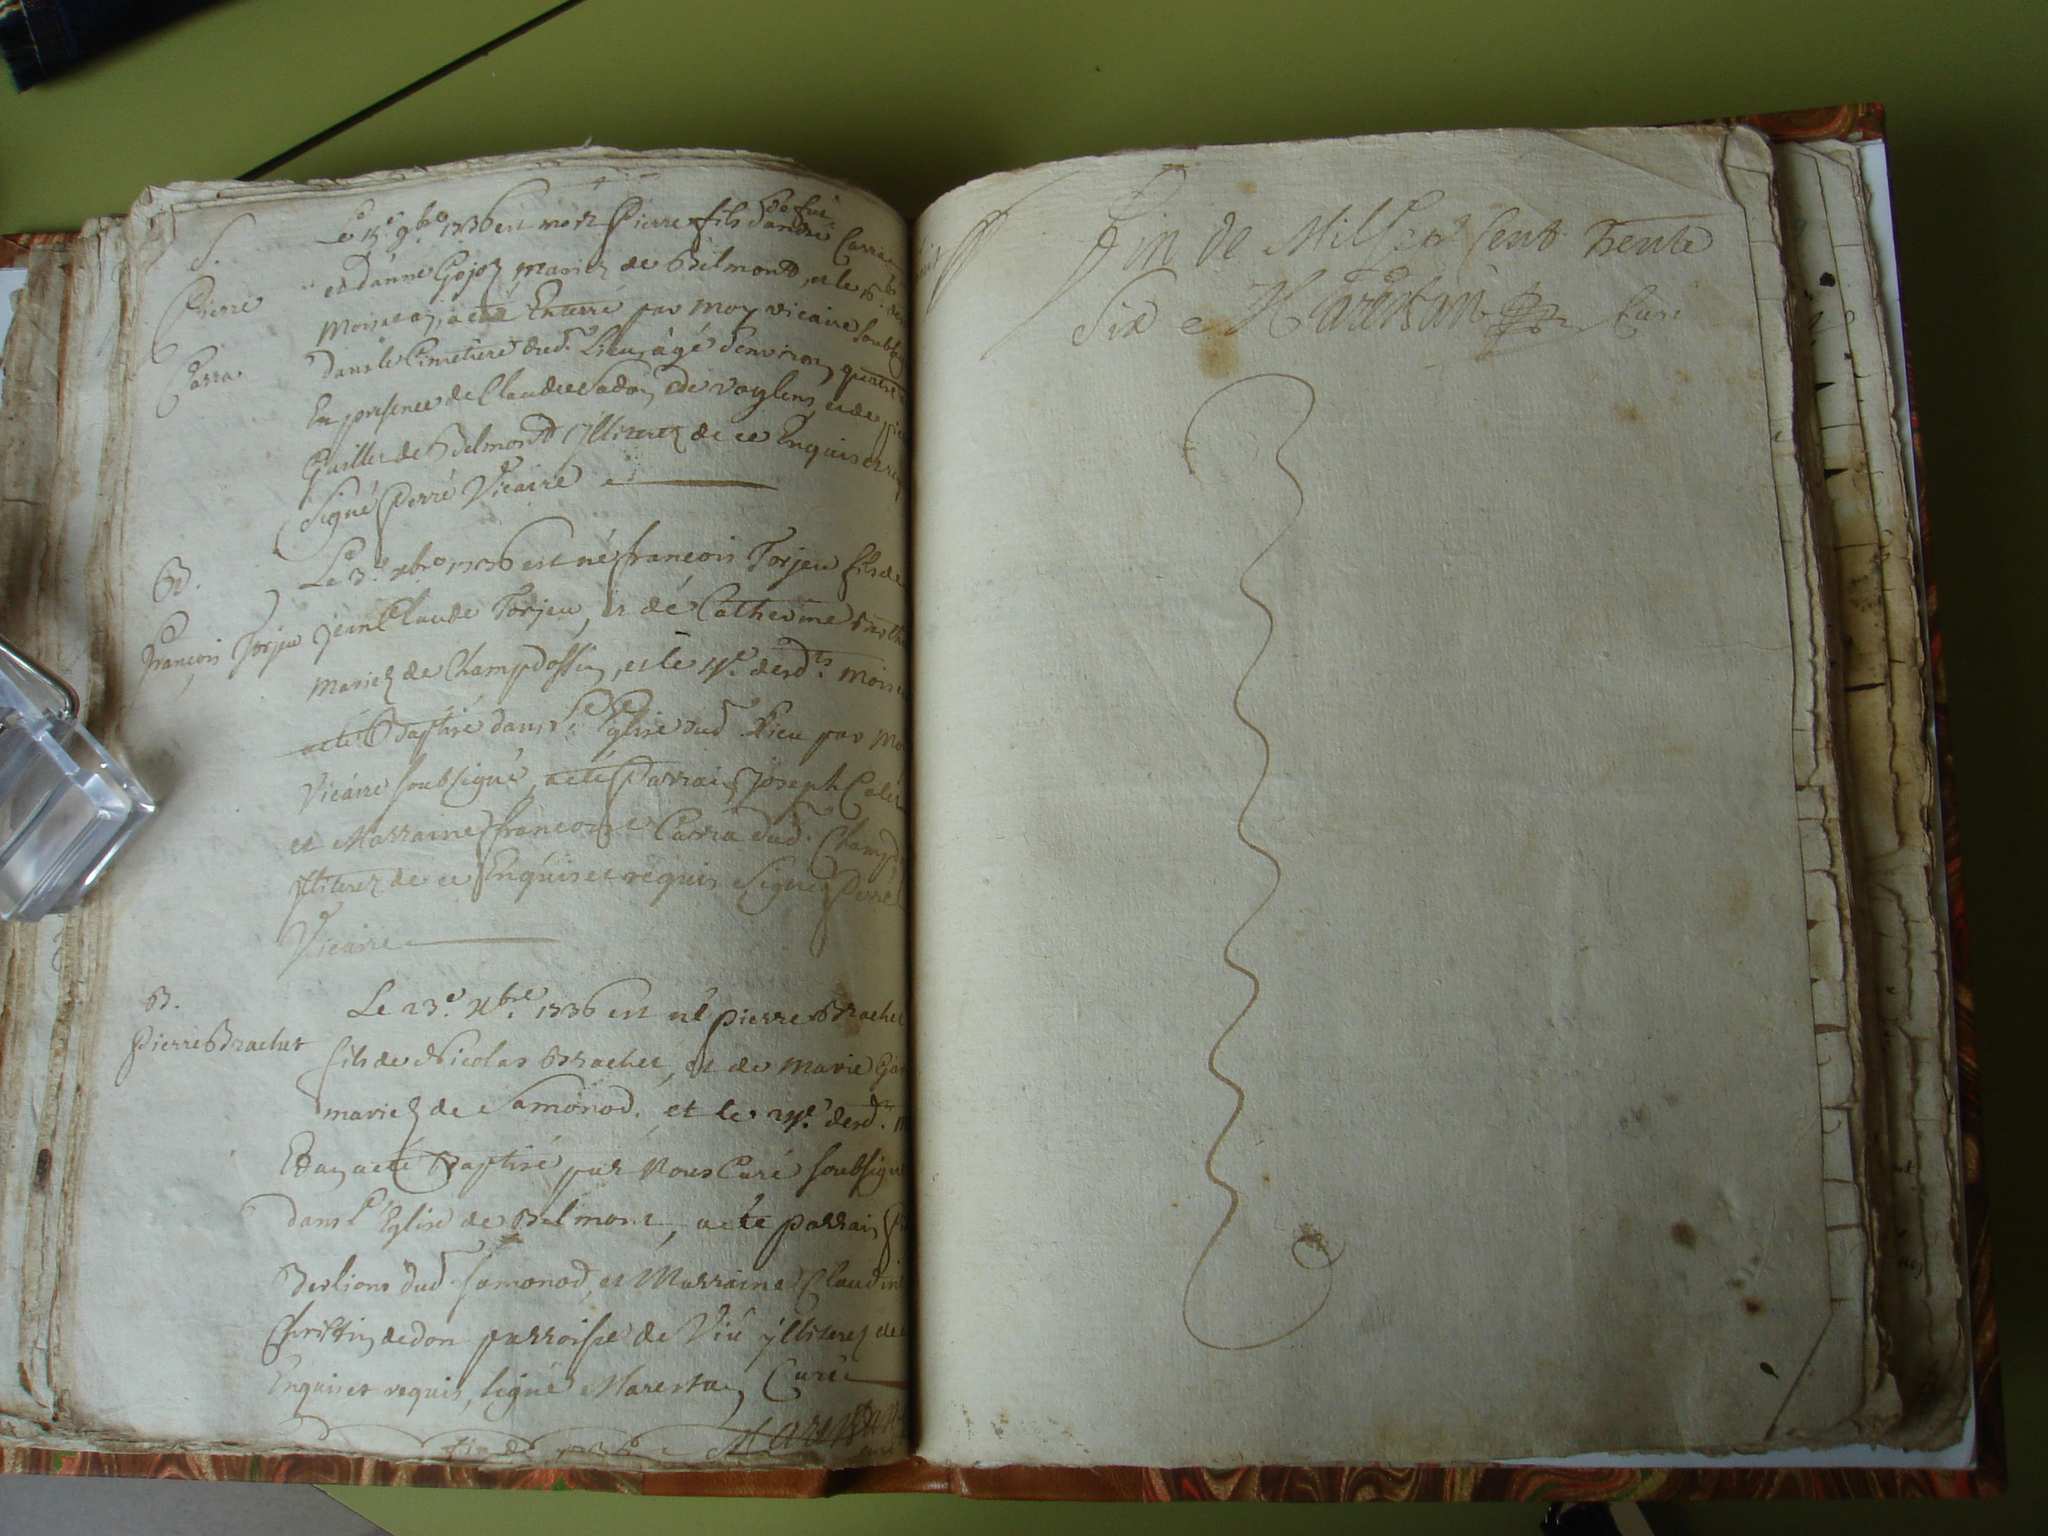 S.
Pierre
Carra
Le 15.e 9bre 1736 est mort Pierre fils d'andré Carra
et d'anne Gojoz mariez de Belmont, et le 16.e
Mois et an, a eté Enterré par moy vicaire soubsigné
dans le Cimetiere dud. Lieu, agé d'environ quatre
En presence de Claude de Voglens et de
de Belmont Illiterez de ce Enquis et requis
Signé Perré Vicaire
B.
françois Torjeu
Le 3.e xbre 1736 est né françois Torjeu fils de
jean Claude Torjeu, et de Catherine
Mariez de Champdossin, et le 4.e desd.ts mois
a eté Baptisé dans l'Eglise dud. Lieu par Moy
Vicaire soubsigné, a eté Parrain Joseph
et Marraine françoise Carra dud. Champd
Illiterez de ce Enquis et requis Signé Perré
Vicaire
B.
Pierre Brachet
Le 23.e xbre 1736 est né pierre Brachet
fils de Nicolas Brachet, et de Marie
mariez de Samonod. et le 24.e desd.
Et an a eté Baptisé par Nous Curé soubsigné
dans l'Eglise de Belmont, a eté parrain
Berlion dud. Samonod, et Marraine Claudine
Christin de don parroisse de Viû ylliterez de
Enquis et requis, signé Marestan Curé
fin de 1736 Marestan
Fin de Mil Sept Cent Trente
Six Marestan Curé